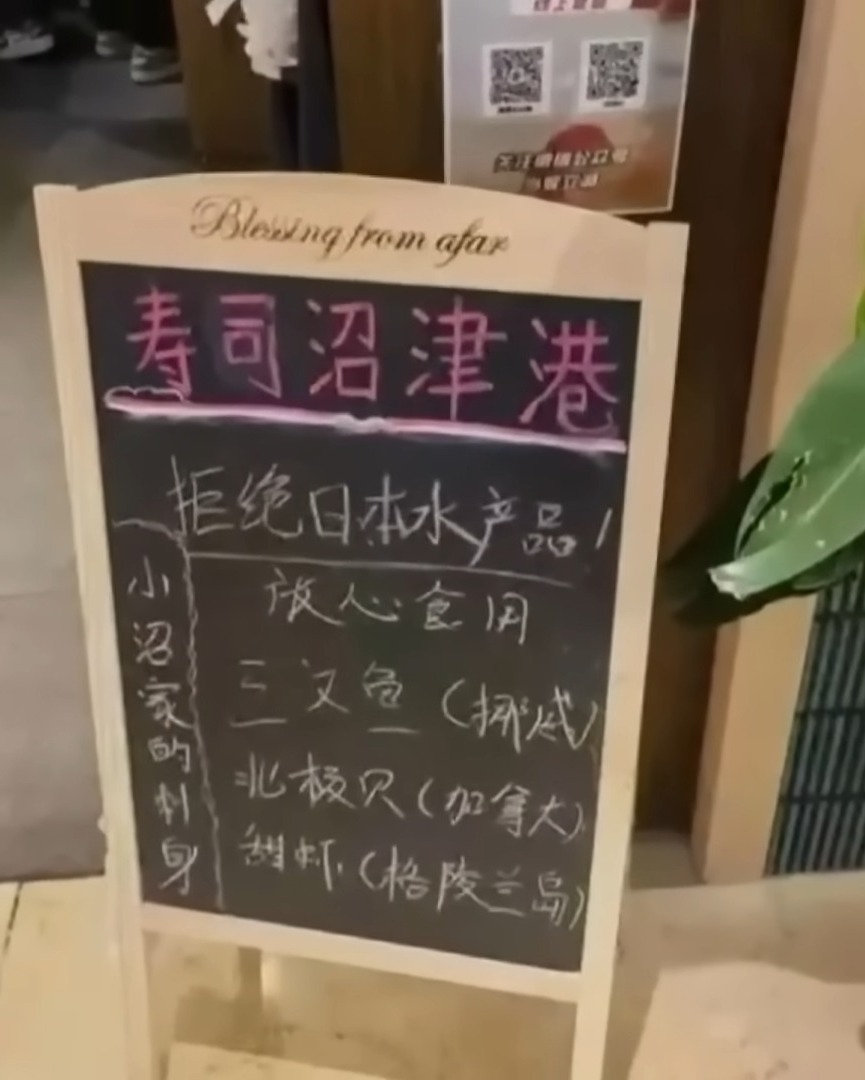 关注微信公众号
Blessing from afar
寿司沼津港
拒绝日本水产品!
小沼家的刺身
放心食用
三文鱼(挪威)
北极贝(加拿大)
甜虾(格陵兰岛)